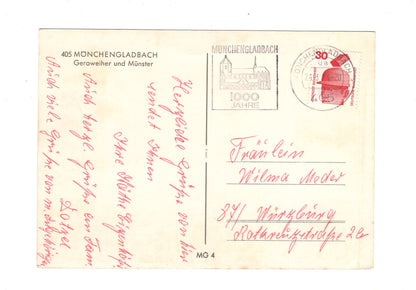 405 MÖNCHENGLADBACH
Geroweiher und Münster
Herzliche Grüße von hier
sendet Ihnen
Ihre Käthe
Auch herzl. Grüße ein Fam.
Auch viele Grüße von
MG 4
MÖNCHENGLADBACH
1000
JAHRE
MÖNCHENGLADBACH
405
30
Fräulein
Wilma Moder
87/ Würzburg